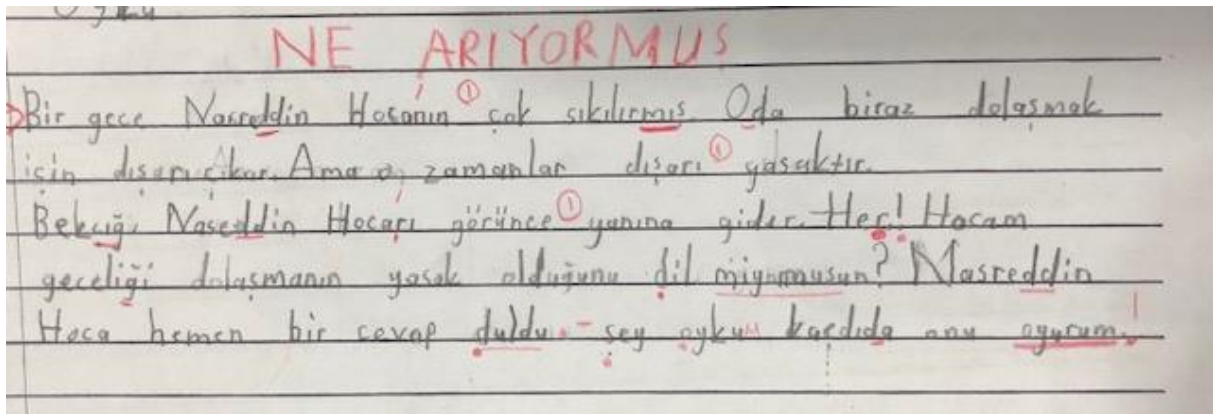 NE ARIYORMUŞ
Bir gece Nasreddin Hocanın çok sıkılırmış. Oda biraz dolaşmak
için dışarı çıkar. Ama o zamanlar dışarı yasaktır.
Bekçiği Naseddin Hocarı görünce yanına gider. Her! Hocam
geceliği dolaşmanın yasak olduğunu dil miyomusun? Nasreddin
Hoca hemen bir cevap duldu. - şey oykum kaçdıda onu oyurum!